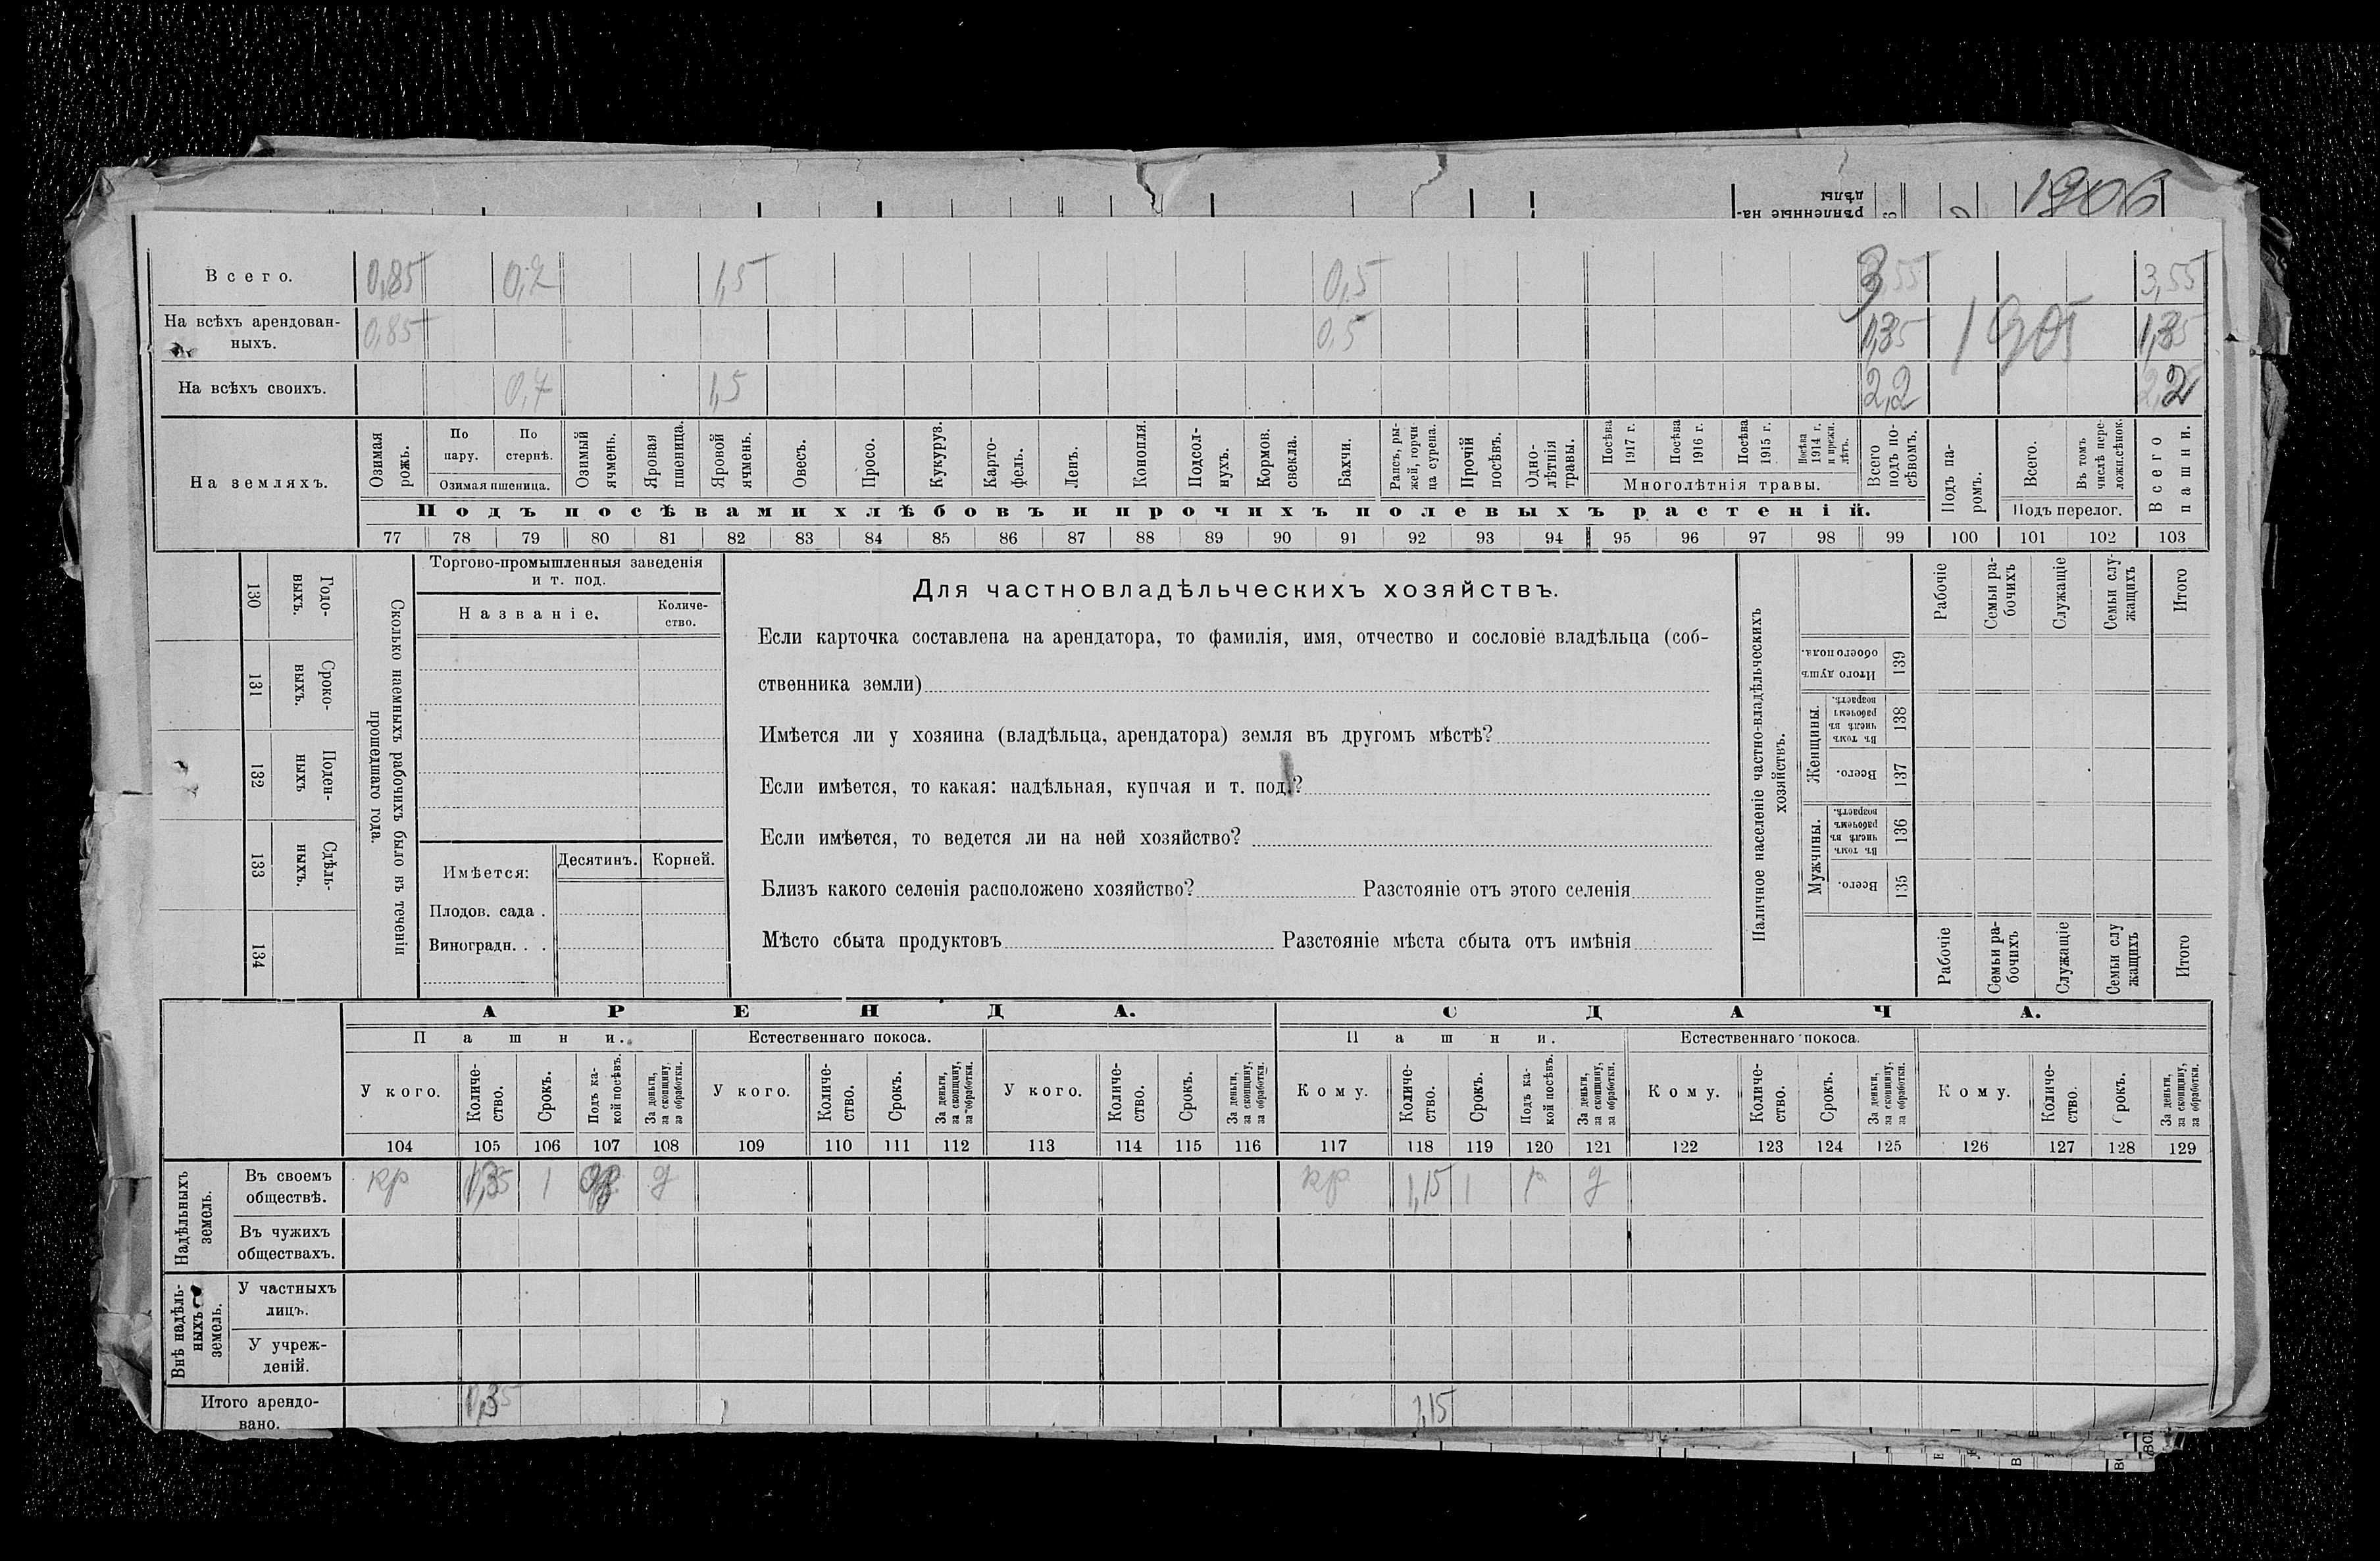 1906
рѣпленные на-
дѣлы
Всего. 0,85 0,7 1,5 0,5 3,55 3,55
На всѣхъ арендован-
ныхъ. 0,85 0,5 1,35 1905 1,35
На всѣхъ своихъ. 0,7 1,5 2,2 2,2
На земляхъ.
Озимая рожь.
По пару.
По стернѣ.
Озимая пшеница.
Озимый ячмень.
Яровая пшеница.
Яровой ячмень.
Овесъ.
Просо.
Кукуруз.
Карто-
фель.
Ленъ.
Конопля.
Подсол-
нухъ.
Кормов.
свекла.
Бахчи.
Рапсъ, ры-
жей, горчи
ца сурепа.
Прочій
посѣвъ.
Одно-
лѣтнія
травы.
Посѣва
1917 г.
Посѣва
1916 г.
Посѣва
1915 г.
Посѣва
1914 г.
и прежн.
лѣтъ.
Многолѣтнія травы.
Всего
подъ по-
сѣвомъ.
Подъ па-
ромъ.
Всего.
Въ томъ
числѣ пере-
ложн.сѣнок.
Подъ перелог.
Всего
пашни.
Подъ посѣвами хлѣбовъ и прочихъ полевыхъ растеній.
77 78 79 80 81 82 83 84 85 86 87 88 89 90 91 92 93 94 95 96 97 98 99 100 101 102 103
Сколько наемныхъ рабочихъ было въ теченіи
прошедшаго года.
Годо-
выхъ.
130
Сроко-
выхъ.
131
Поден-
ныхъ
132
Сдѣль-
ныхъ.
133
134
Торгово-промышленныя заведенія
и т. под.
Названіе.
Количе-
ство.
Имѣется: Десятинъ. Корней.
Плодов. сада .
Виноградн. . .
Для частновладѣльческихъ хозяйствъ.
Если карточка составлена на арендатора, то фамилія, имя, отчество и сословіе владѣльца (соб-
ственника земли)
Имѣется ли у хозяина (владѣльца, арендатора) земля въ другомъ мѣстѣ?
Если имѣется, то какая: надѣльная, купчая и т. под.?
Если имѣется, то ведется ли на ней хозяйство?
Близъ какого селенія расположено хозяйство? Разстояніе отъ этого селенія
Мѣсто сбыта продуктовъ Разстояніе мѣста сбыта отъ имѣнія
Наличное населеніе частно-владѣльческихъ
хозяйствъ.
Рабочіе
Семьи ра-
бочихъ
Служащіе
Семьи слу-
жащихъ
Итого
Итого душъ
обоего пола.
139
Женщины.
Въ томъ
числѣ въ
рабочемъ
возрастѣ.
138
Всего.
137
Мужчины.
Въ томъ
числѣ въ
рабочемъ
возрастѣ.
136
Всего.
135
Рабочіе
Семьи ра-
бочихъ
Служащіе
Семьи слу
жащихъ
Итого
АРЕНДА. СДАЧА.
Пашни. Естественнаго покоса. Пашни. Естественнаго покоса.
У кого.
Количе-
ство.
Срокъ.
Подъ ка-
кой посѣвъ.
За деньги,
за скопщину,
за обработки.
У кого.
Количе-
ство.
Срокъ.
За деньги,
за скопщину,
за обработки.
У кого.
Количе-
ство.
Срокъ.
За деньги,
за скопщину,
за обработки.
Кому.
Количе-
ство.
Срокъ.
Подъ ка-
кой посѣвъ.
За деньги,
за скопщину,
за обработки.
Кому.
Количе-
ство.
Срокъ.
За деньги,
за скопщину,
за обработки.
Кому.
Количе-
ство.
рокъ.
За деньги,
за скопщину,
за обработки.
104 105 106 107 108 109 110 111 112 113 114 115 116 117 118 119 120 121 122 123 124 125 126 127 128 129
Надѣльныхъ
земель.
Въ своемъ
обществѣ. кр 1,35 1 д кр 1,15 1 р д
Въ чужихъ
обществахъ.
Внѣ надѣль-
ныхъ
земель.
У частныхъ
лицъ.
У учреж-
деній.
Итого арендо-
вано. 1,35 1,15